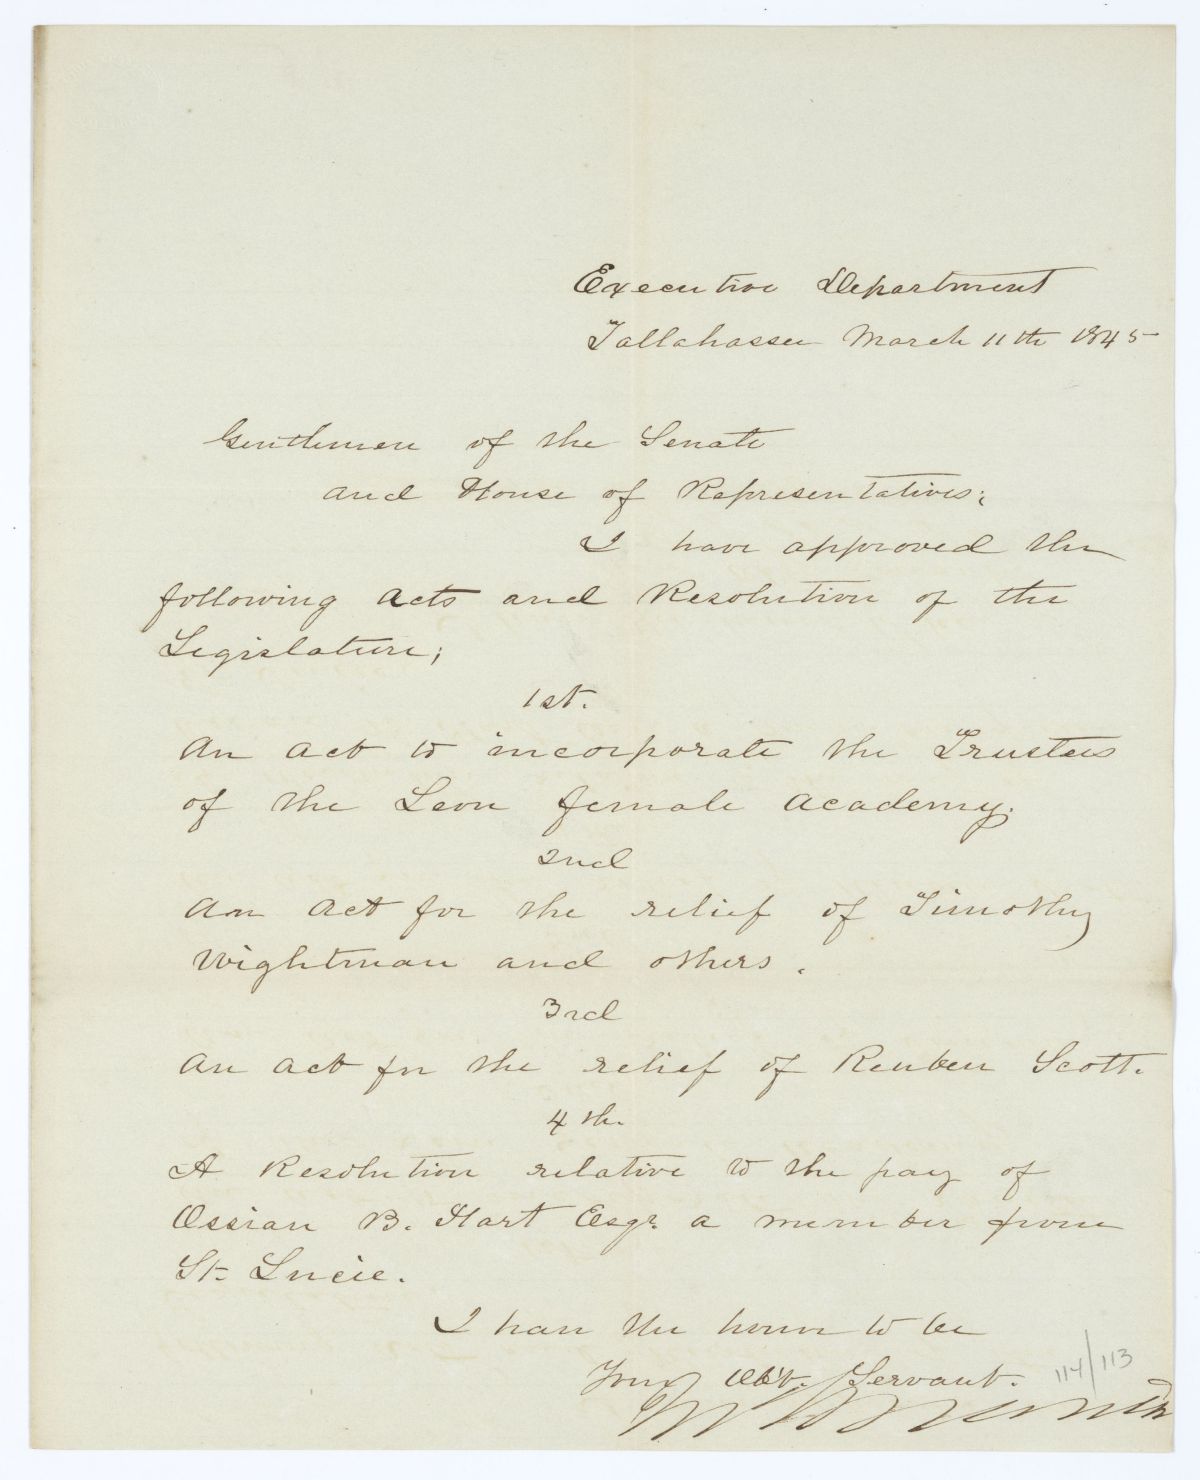 Executive Department
Tallahassee March 11th 1845
Gentlemen of the Senate
and House of Representatives;
I have approved the
following acts and Resolution of the
Legislature;
1st.
An act to incorporate the Trustees
of the Leon female academy.
2nd
An Act for the relief of Timothy
Wightman and others.
3rd
An act for the relief of Reuben Scott.
4th.
A Resolution relative to the pay of
Ossian B. Hart Esqr. a member from
St. Lucie.
I have the honor to be
Your Obt. Servant.
114/113